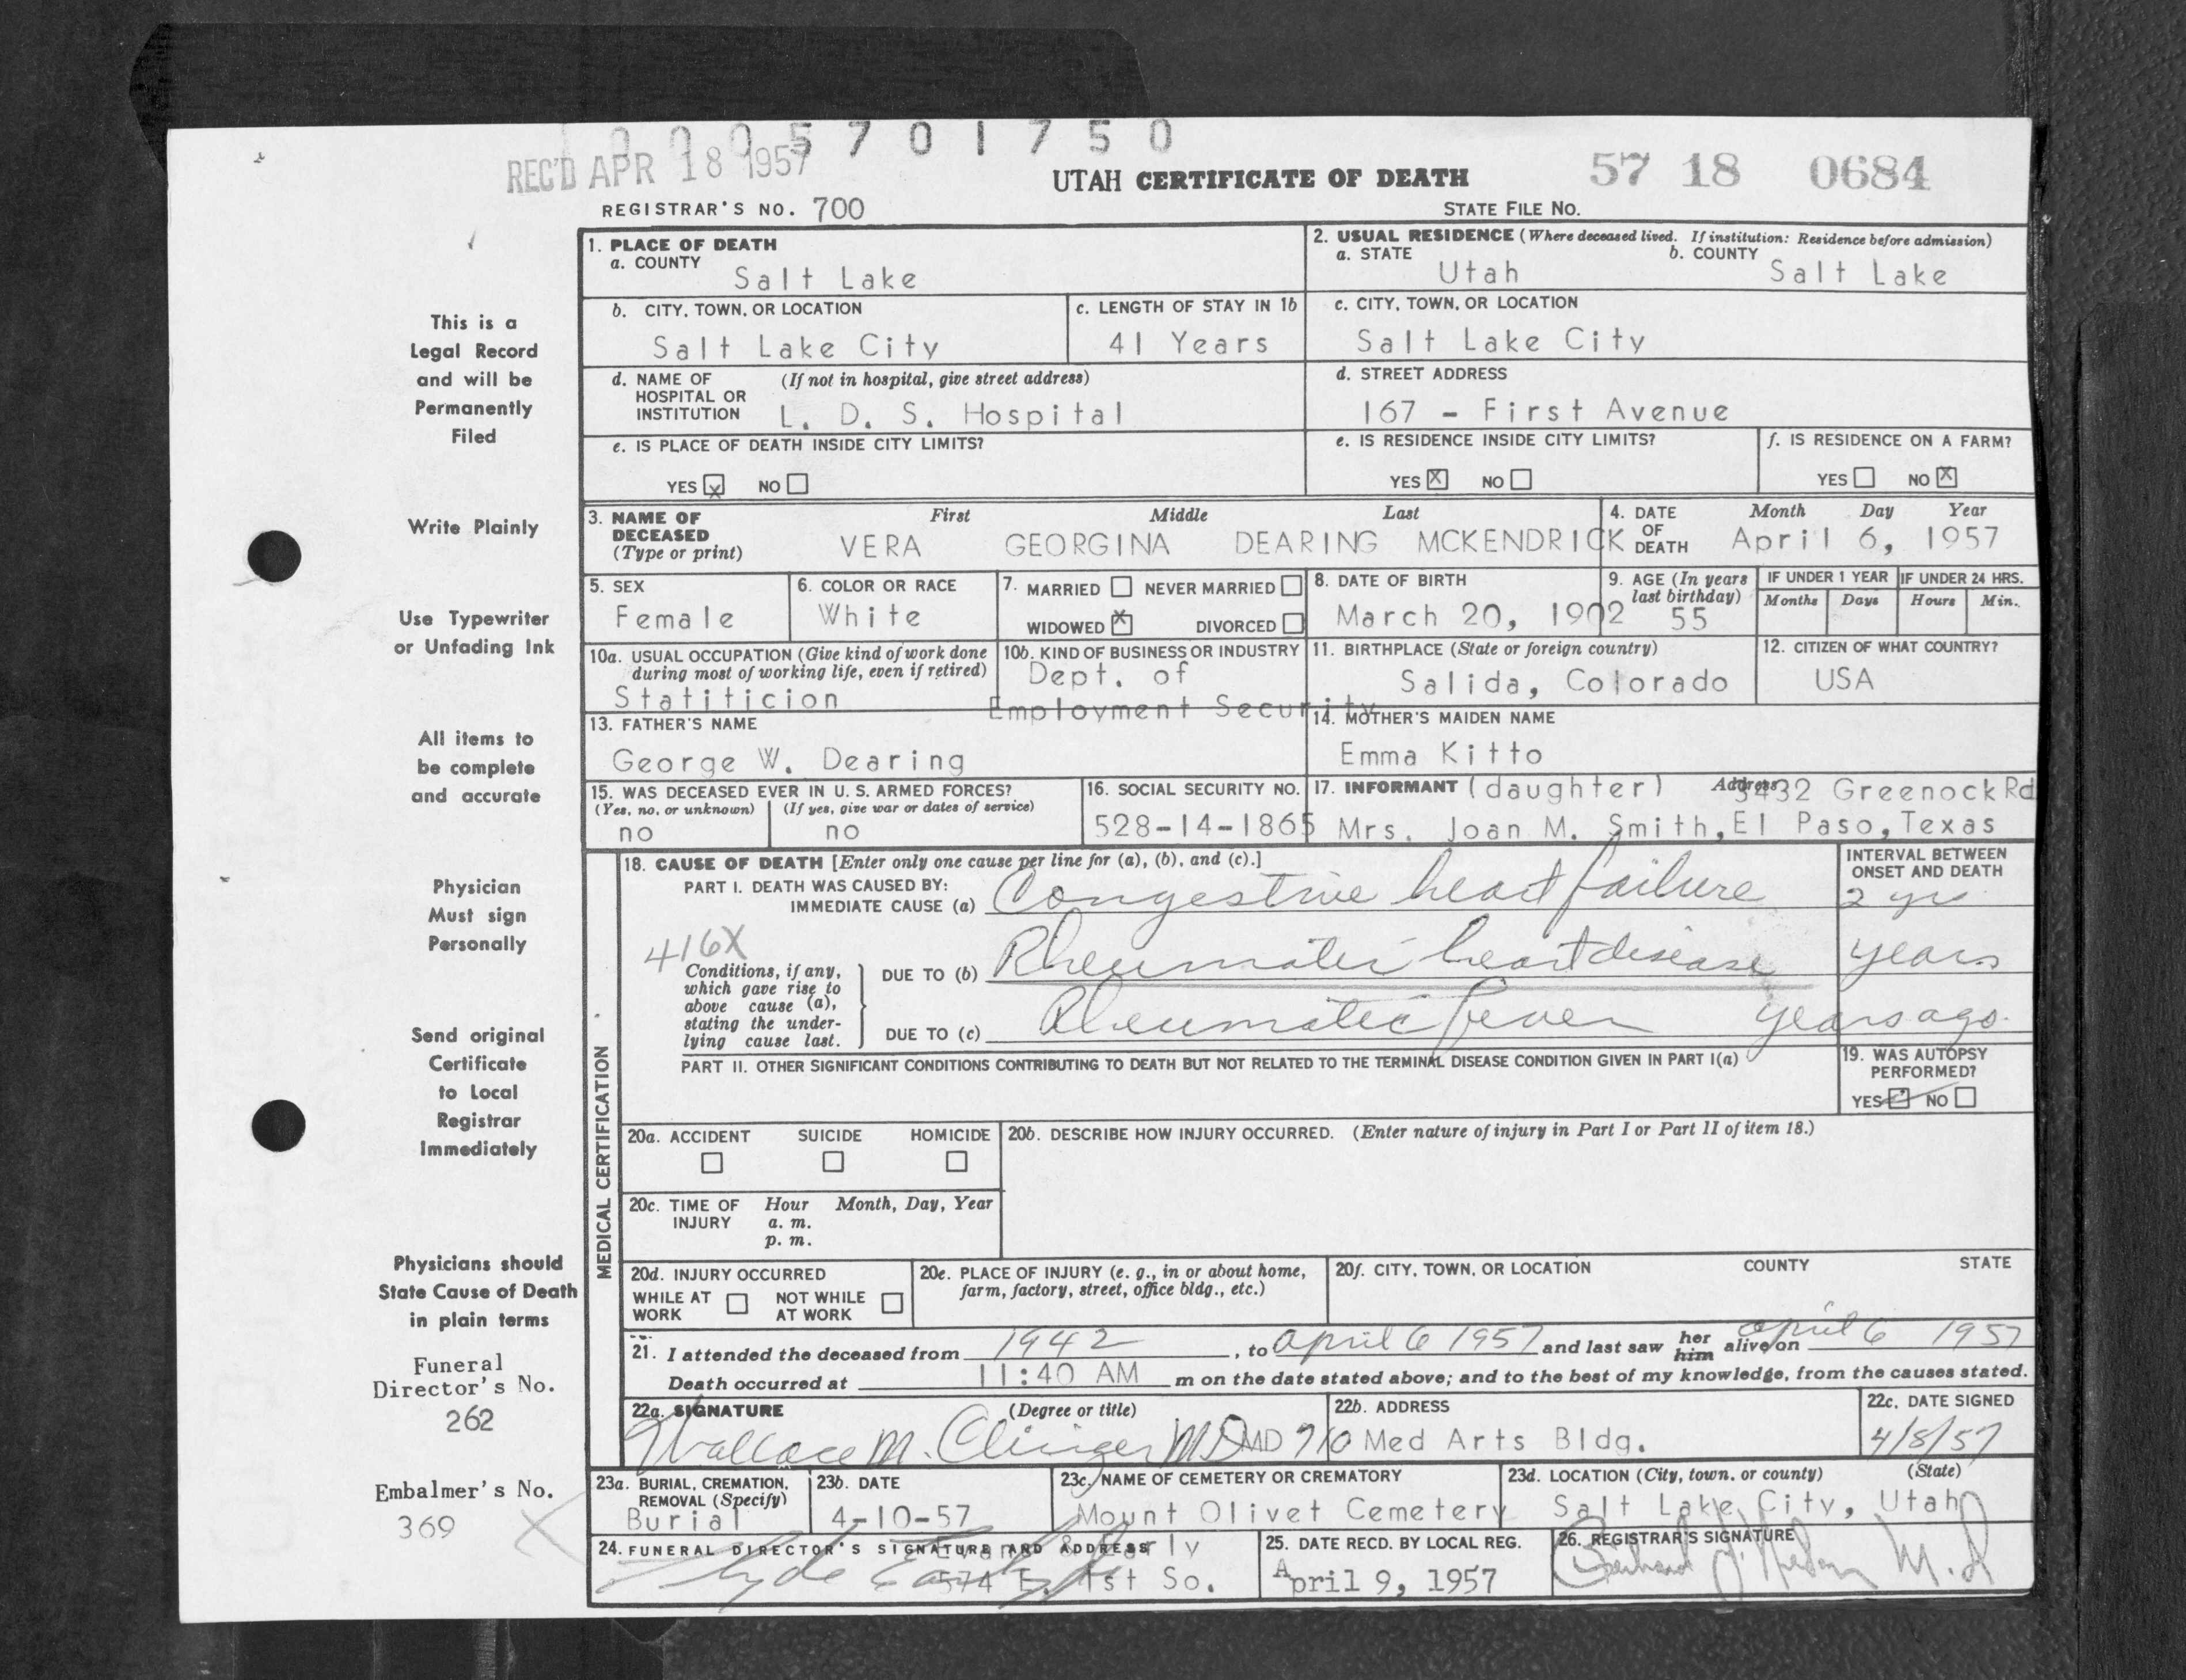 0 0 0 5 7 0 1 7 5 0
REC'D APR 18 1957
UTAH CERTIFICATE OF DEATH
57 18 0684
REGISTRAR'S NO. 700
STATE FILE NO.
1. PLACE OF DEATH
a. COUNTY
Salt Lake
2. USUAL RESIDENCE (Where deceased lived. If institution: Residence before admission)
a. STATE
Utah
b. COUNTY
Salt Lake
b. CITY, TOWN, OR LOCATION
Salt Lake City
c. LENGTH OF STAY IN 1b
41 Years
c. CITY, TOWN, OR LOCATION
Salt Lake City
d. NAME OF HOSPITAL OR INSTITUTION
(If not in hospital, give street address)
L. D. S. Hospital
d. STREET ADDRESS
167 - First Avenue
e. IS PLACE OF DEATH INSIDE CITY LIMITS?
YES X NO
e. IS RESIDENCE INSIDE CITY LIMITS?
YES X NO
f. IS RESIDENCE ON A FARM?
YES NO X
3. NAME OF DECEASED
(Type or print)
First Middle Last
VERA GEORGINA DEARING MCKENDRICK
4. DATE OF DEATH
Month Day Year
April 6, 1957
5. SEX
Female
6. COLOR OR RACE
White
7. MARRIED NEVER MARRIED
WIDOWED X DIVORCED
8. DATE OF BIRTH
March 20, 1902
9. AGE (In years last birthday)
55
IF UNDER 1 YEAR
Months Days
IF UNDER 24 HRS.
Hours Min.
10a. USUAL OCCUPATION (Give kind of work done during most of working life, even if retired)
Statiticion
10b. KIND OF BUSINESS OR INDUSTRY
Dept. of
Employment Security
11. BIRTHPLACE (State or foreign country)
Salida, Colorado
12. CITIZEN OF WHAT COUNTRY?
USA
13. FATHER'S NAME
George W. Dearing
14. MOTHER'S MAIDEN NAME
Emma Kitto
15. WAS DECEASED EVER IN U. S. ARMED FORCES?
(Yes, no, or unknown) (If yes, give war or dates of service)
no no
16. SOCIAL SECURITY NO.
528-14-1865
17. INFORMANT (daughter) Address 3432 Greenock Rd
Mrs. Joan M. Smith, El Paso, Texas
MEDICAL CERTIFICATION
18. CAUSE OF DEATH [Enter only one cause per line for (a), (b), and (c).]
PART I. DEATH WAS CAUSED BY:
IMMEDIATE CAUSE (a) Congestive heart failure
INTERVAL BETWEEN ONSET AND DEATH
2 yrs
416X
Conditions, if any, which gave rise to above cause (a), stating the underlying cause last.
DUE TO (b) Rheumatic heart disease years
DUE TO (c) Rheumatic fever years ago.
PART II. OTHER SIGNIFICANT CONDITIONS CONTRIBUTING TO DEATH BUT NOT RELATED TO THE TERMINAL DISEASE CONDITION GIVEN IN PART I(a)
19. WAS AUTOPSY PERFORMED?
YES NO
20a. ACCIDENT SUICIDE HOMICIDE
20b. DESCRIBE HOW INJURY OCCURRED. (Enter nature of injury in Part I or Part II of item 18.)
20c. TIME OF INJURY
Hour Month, Day, Year
a. m.
p. m.
20d. INJURY OCCURRED
WHILE AT WORK NOT WHILE AT WORK
20e. PLACE OF INJURY (e. g., in or about home, farm, factory, street, office bldg., etc.)
20f. CITY, TOWN, OR LOCATION COUNTY STATE
21. I attended the deceased from 1942, to April 6 1957 and last saw her him alive on April 6 1957
Death occurred at 11:40 AM m on the date stated above; and to the best of my knowledge, from the causes stated.
22a. SIGNATURE (Degree or title)
Wallace M. Clinger MD MD
22b. ADDRESS
710 Med Arts Bldg.
22c. DATE SIGNED
4/8/57
23a. BURIAL, CREMATION, REMOVAL (Specify)
Burial
23b. DATE
4-10-57
23c. NAME OF CEMETERY OR CREMATORY
Mount Olivet Cemetery
23d. LOCATION (City, town, or county) (State)
Salt Lake City, Utah
24. FUNERAL DIRECTOR'S SIGNATURE AND ADDRESS
Evans & Early
574 E. 1st So.
25. DATE RECD. BY LOCAL REG.
April 9, 1957
26. REGISTRAR'S SIGNATURE
M.D
This is a
Legal Record
and will be
Permanently
Filed
Write Plainly
Use Typewriter
or Unfading Ink
All items to
be complete
and accurate
Physician
Must sign
Personally
Send original
Certificate
to Local
Registrar
Immediately
Physicians should
State Cause of Death
in plain terms
Funeral
Director's No.
262
Embalmer's No.
369